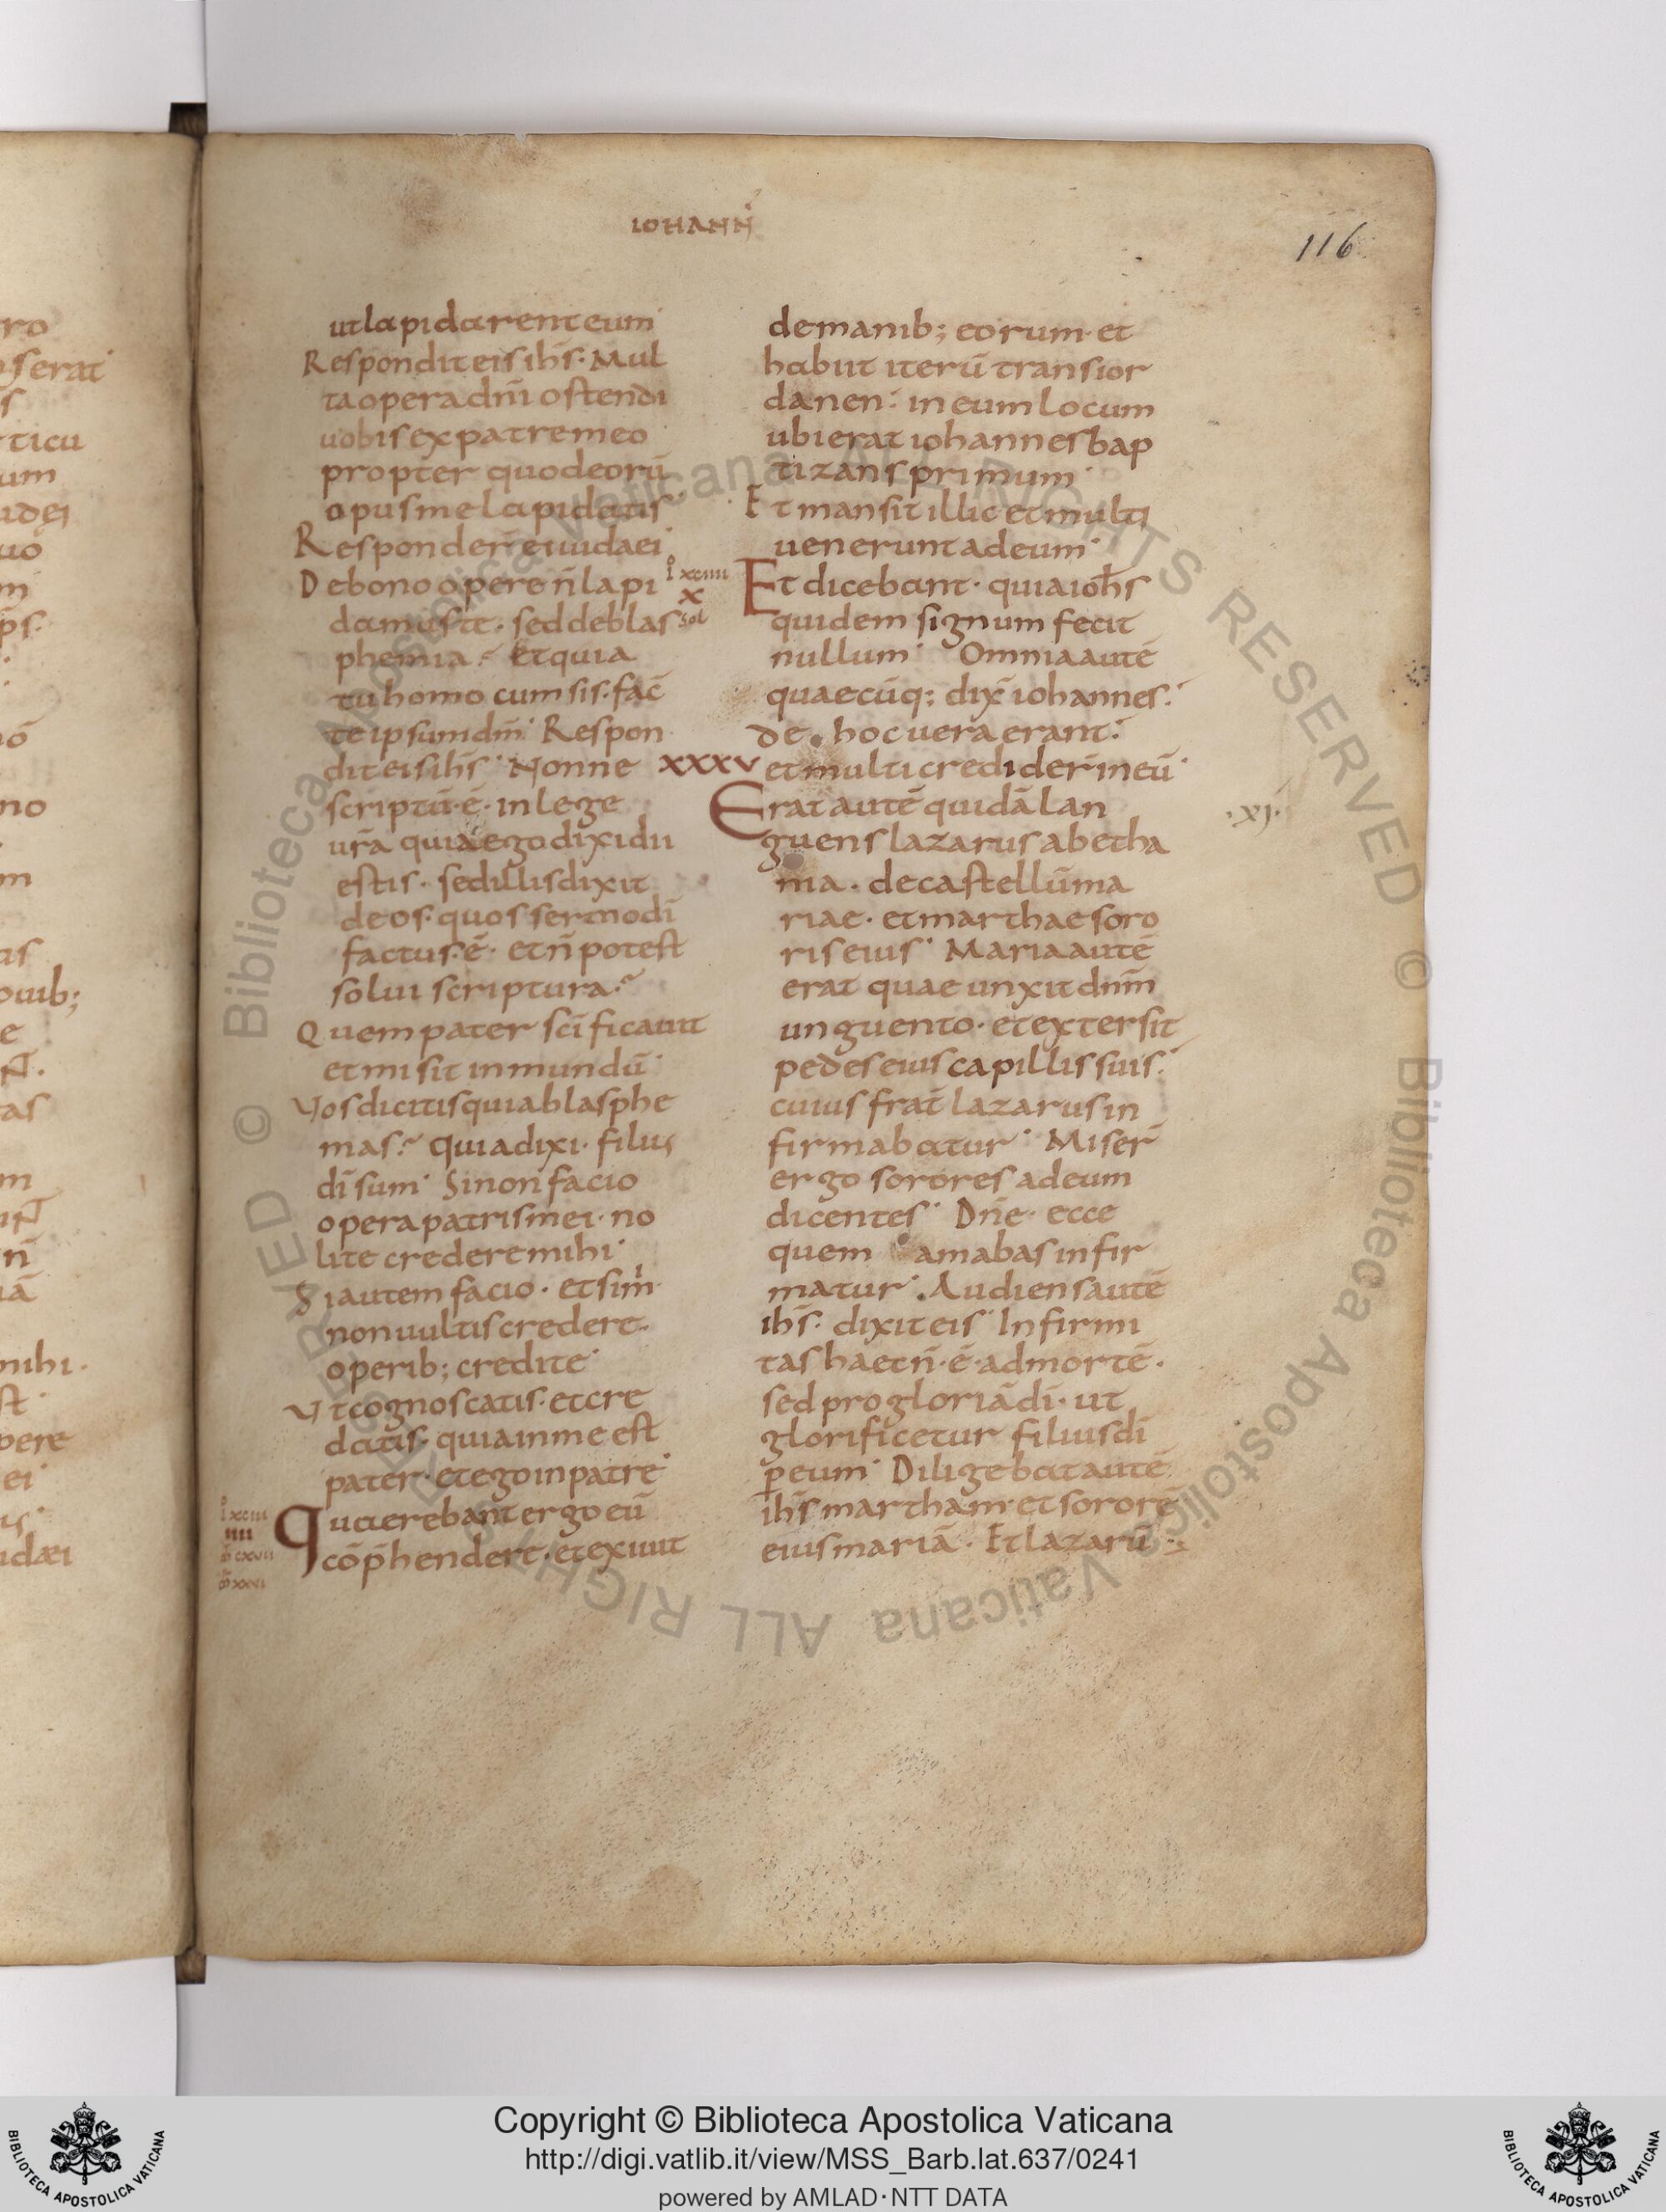 IOHANN̄
116
ut lapidarent eum·
Respondit eis ih̄s· Mul
ta opera dn̄i ostendi
uobis ex patre meo
propter quod eorū
opus me lapidatis·
Responder̄ ei iudaei·
Debono opere n̄ lapi
damus te· sed de blas
phemia· Et quia
tu homo cum sis· fac̄
te ipsum dm̄· Respon
dit eis ih̄s· Nonne
scriptū·ē· in lege
ur̄a quia ego dixi dii
estis· sed illis dixit
deos· quos sermo dī
factus·ē· et n̄ potest
solui scriptura·
Quem pater sc̄ificauit
et misit in mundū·
Vos dicitis quia blasphe
mas· quia dixi· filius
dī sum· Si non facio
opera patris mei· no
lite credere mihi·
Si autem facio· et si m̍
non uultis credere·
operib; credite·
Vt cognoscatis· et cre
datis· quia in me est
pater· et ego in patre·
Quaerebant ergo eū
cōp̄hendere· et exiuit
ı̊ xciii
IIII
m̄ cxvii
m̄ xxvi
de manib; eorum· et
habiit iterū trans ior
danen· in eum locum
ubi erat iohannes bap
tizans primum·
Et mansit illic et multi
uenerunt ad eum·
ı̊ xciiii
X
sol
Et dicebant· quia ioh̄s
quidem signum fecit
nullum· Omnia autē
quaecūq; dix̄ iohannes·
de hoc uera erant·
et multi credider̄ in eū·
XXXV
Erat autē quidā lan
guens lazarus a betha
nia· de castellū ma
riae· et marthae soro
ris eius· Maria autē
erat quae unxit dnm̄
unguento· et extersit
pedes eius capillis suis·
cuius frat̄ lazarus in
firmabatur· Miser̄
ergo sorores ad eum
dicentes· Dn̄e· ecce
quem amabas infir
matur· Audiens autē
ih̄s· dixit eis· Infirmi
tas haec n̄·ē· ad mortē·
sed pro gloriā dī· ut
glorificetur filius dī
p̱ eum· Diligebat autē
ih̄s martham· et sororē
eius mariā· Et lazarū
·xj·
Copyright © Biblioteca Apostolica Vaticana
http://digi.vatlib.it/view/MSS_Barb.lat.637/0241
powered by AMLAD·NTT DATA
BIBLIOTECA APOSTOLICA VATICANA
BIBLIOTECA APOSTOLICA VATICANA